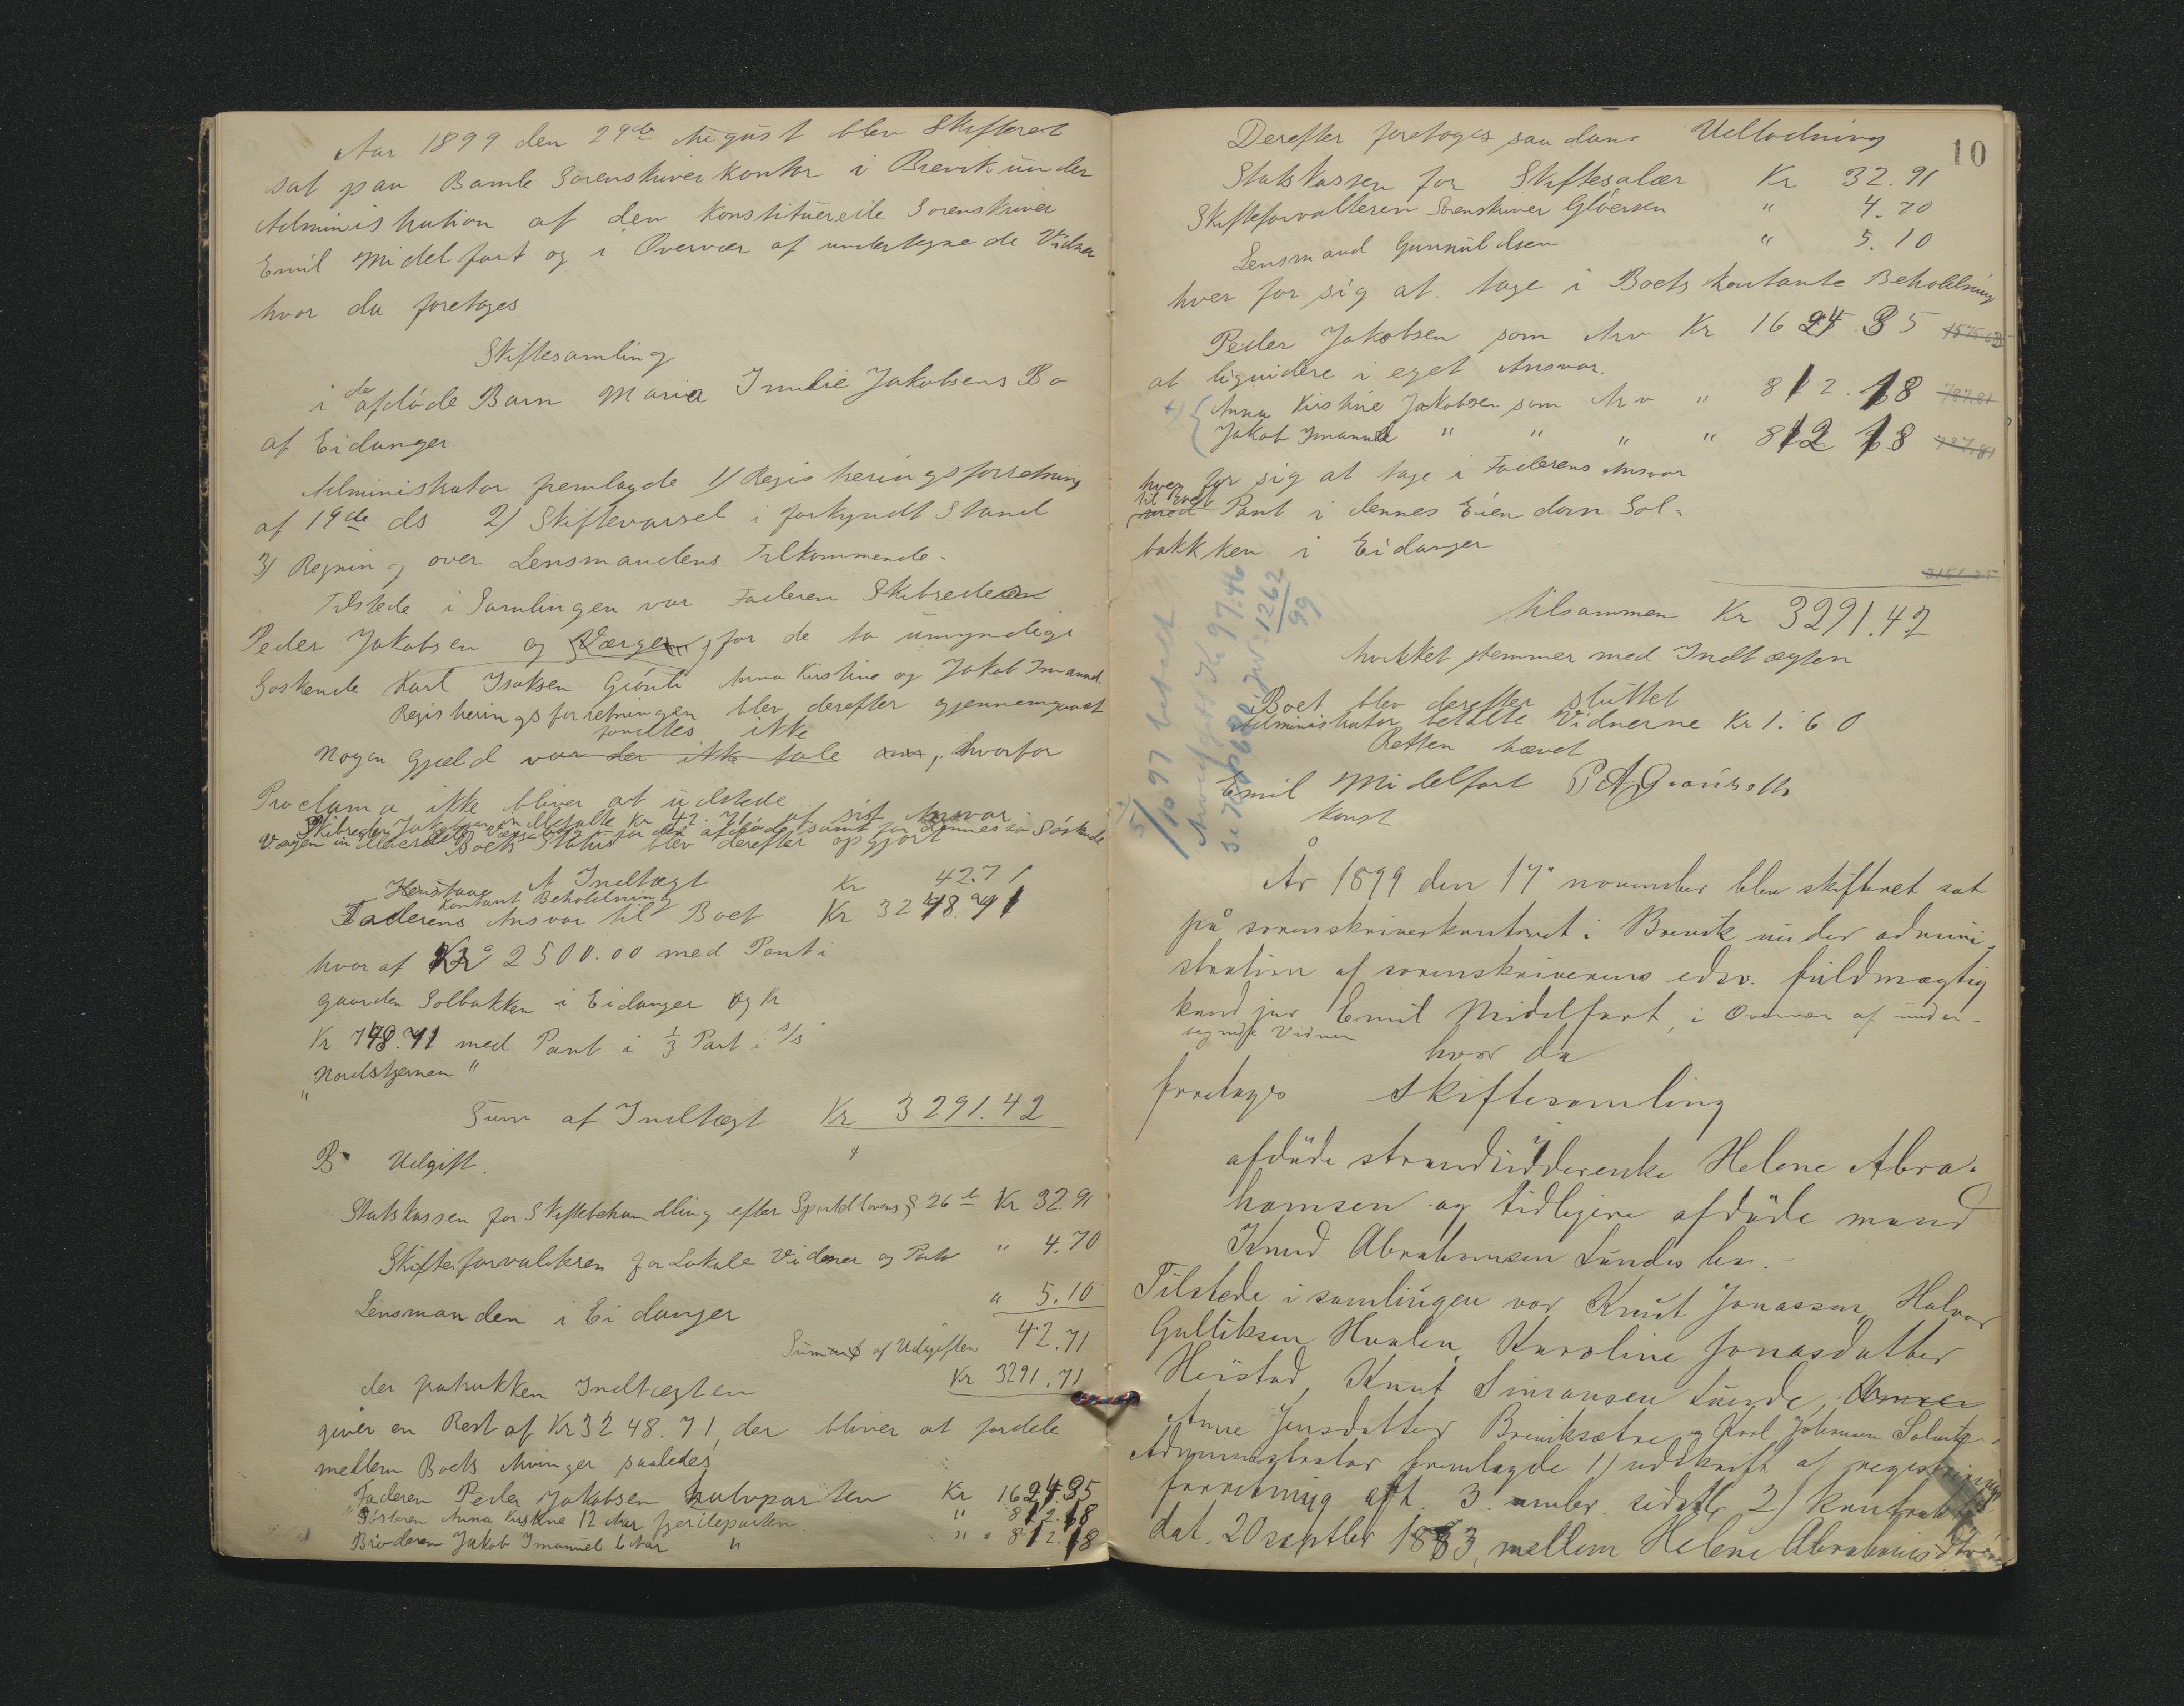 Aar 1899 den 29de August blev Skifteret
sat paa Bamle Sorenskriverkontor i Brevik under
Administration af den konstituerede Sorenskriver
Emil Midelfart og i Overvær af undertegnede Vidner
hvor da foretoges
Skiftesamling
i de afdøde Barn Maria Imelie Jakobsens Bo
af Eidanger.
Administrator fremlagde 1) Registreringsforretning
af 19de ds 2) Skiftevarsel i forkyndt Stand
3) Regning over Lensmandens Tilkommende.
Tilstede i Samlingen var Faderen Skibreder
Peder Jakobsen og Værgen for de to umyndige
Søskende Karl Isaksen Grønli Anna Kirstine og Jakob Imanuel.
Registreringsforretningen blev derefter gjennemgaaet
fandtes ikke
Nogen Gjæld var der ikke tale om, hvorfor
Proclama ikke bliver at udstede
Skibreder Jakobsen indbetalte Kr 42.71 af sit Ansvar
Boets Status blev derefter opgjort
A Indtægt Kr 42.71
Kontant Beholdning
Faderens Ansvar til Boet Kr 3248.71
hvoraf Kr 2500.00 med Pant i
gaarden Solbakken i Eidanger og Kr
Kr 748.71 med Pant i 1/3 Part i S/s
"Nordstjernen"
Sum af Indtægt Kr 3291.42
B Udgift.
Statskassen for Skiftebehandling efter Sportellovens § 26 Kr 32.91
Skifteforvalteren for Lokale Vidner og Porto " 4.70
Lensmanden i Eidanger " 5.10
Summa af Udgiften 42.71
der fratrukken Indtægten Kr 3291.71
giver en Rest af Kr 3248.71, der bliver at fordele
mellem Boets Arvinger saaledes
Faderen Peder Jakobsen halvparten Kr 1624.35
Søsteren Anna Kirstine 12 Aar fjerdeparten " 812.18
Broderen Jakob Imanuel 6 Aar " " 812.18
10
Derefter foretoges saadan Udlodning
Statskassen for Skiftesalær Kr 32.91
Skifteforvalteren Sorenskriver Gløersen " 4.70
Lensmand Gunnuldsen " 5.10
hver for sig at tage i Boets kontante Beholdning
Peder Jakobsen som Arv Kr 1624.35 1575.63
at liquidere i eget Ansvar.
Anna Kirstine Jakobsen som Arv " 812.18 787.81
Jakob Imanuel " " " " 812.18 787.81
hver for sig at tage i Faderens Ansvar
til Boet
med Pant i dennes Eiendom Sol-
bakkken i Eidanger
3151.25
tilsammen Kr 3291.42
hvilket stemmer med Indtægten
Boet blev derefter sluttet
Administrator betalte Vidnerne Kr 1.60
Retten hævet
Emil Midelfart
konst
5/10 97 betalt
Kr 97.46
År 1899 den 17 november blev skifteret sat
på sorenskriverkontoret i Brevik under admini-
stration af sorenskriverens edsv. fuldmægtig
kand jur Emil Midelfart, i Overvær af under-
tegnede Vidner
hvor da
foretoges skiftesamling
i
afdøde strandsidderenke Helene Abra-
hamsen og tidligere afdøde mand
Knud Abrahamsen Lundes bo.
Tilstede i samlingen var Knut Jonassen, Halvor
Gulliksen Hvalen, Karoline Jonasdatter
Heistad, Knut Simonsen Lunde,
Anne Jensdatter Breviksætre og Karl Johannes
Administrator fremlagde 1) udskrift af registrerings
forretning afh. 3. sidstl. 2) kontrakt
dat. 20 septbr 1883, mellem Helene Abrahams